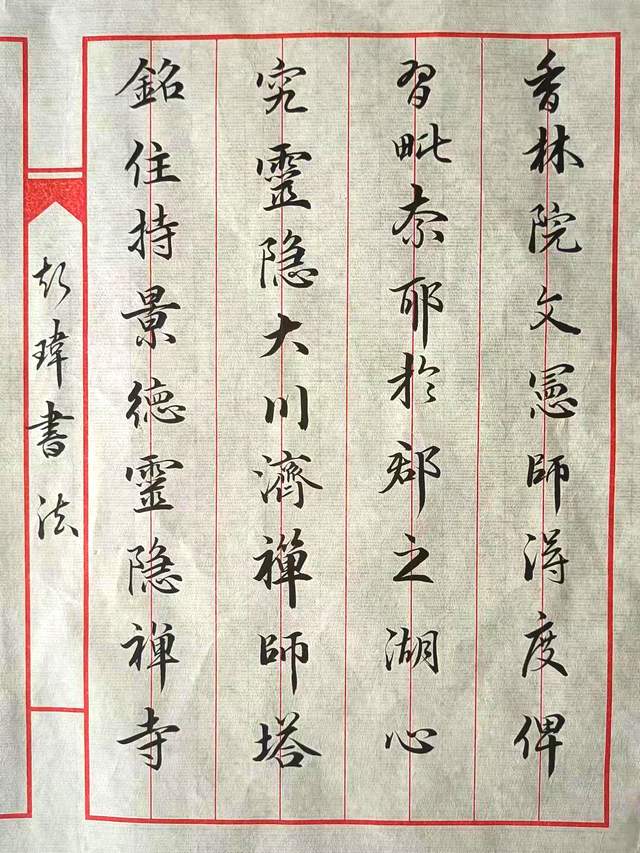 香林院文憲師得度俾
習毗奈耶於郡之湖心
究靈隐大川濟禪師塔
銘住持景德靈隐禪寺
彭瑋書法